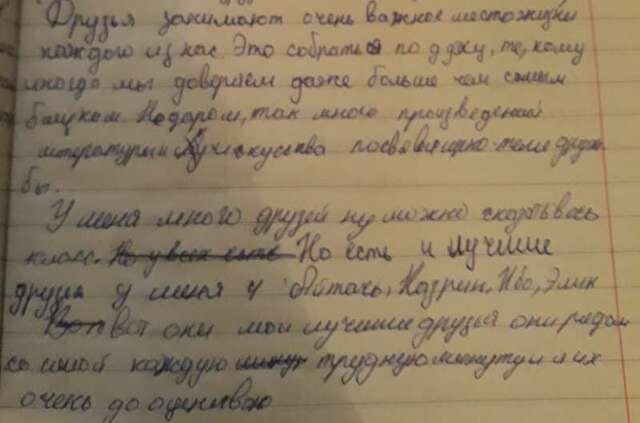 Друзья занимают очень важное место жизни
каждого из нас. Это собратья по духу, те, кому
иногда мы доверяем даже больше чем самым
Недаром, так много произведений
литературы и искусства теме друж
бы.
У меня много друзей ну можно сказать весь
класс. Но у всех есть Но есть и лучшие
друзя у меня Айтаж, Назрин, Нбо, Элик
Вот вот они мои лучшие друзья они рядом
со мной каждую минут трудную минуту и я их
очень до оценяваю